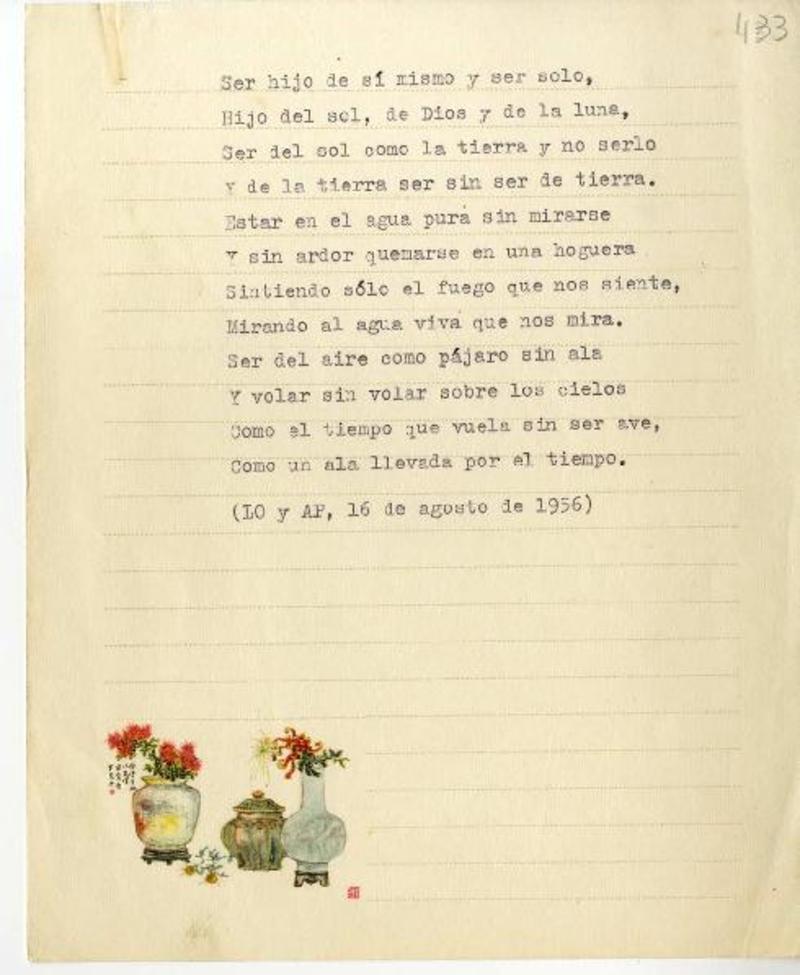 433
Ser hijo de sí mismo y ser solo,
Hijo del sol, de Dios y de la luna,
Ser del sol como la tierra y no serlo
Y de la tierra ser sin ser de tierra.
Estar en el agua pura sin mirarse
Y sin ardor quemarse en una hoguera
Sintiendo sólo el fuego que nos siente,
Mirando al agua viva que nos mira.
Ser del aire como pájaro sin ala
Y volar sin volar sobre los cielos
Como el tiempo que vuela sin ser ave,
Como un ala llevada por el tiempo.
(LO y AP, 16 de agosto de 1956)